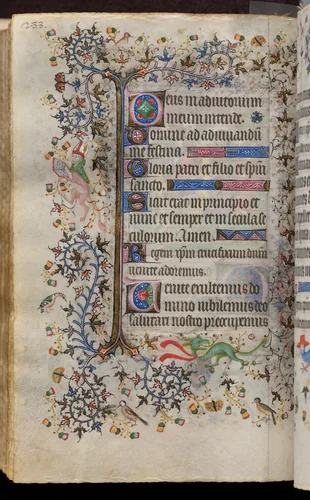 233.
Deus in adiutorium
meum intende.
Domine ad adiuuandū
me festina.
Gloria patri et filio et spiri
sancto.
Sicut erat in principio et
nunc et semper et in secula se
culorum. Amen.
Regem xpm crucifixum dum
uenite adoremus.
Uenite exultemus do
mino iubilemus deo
salutari nostro preocupemus